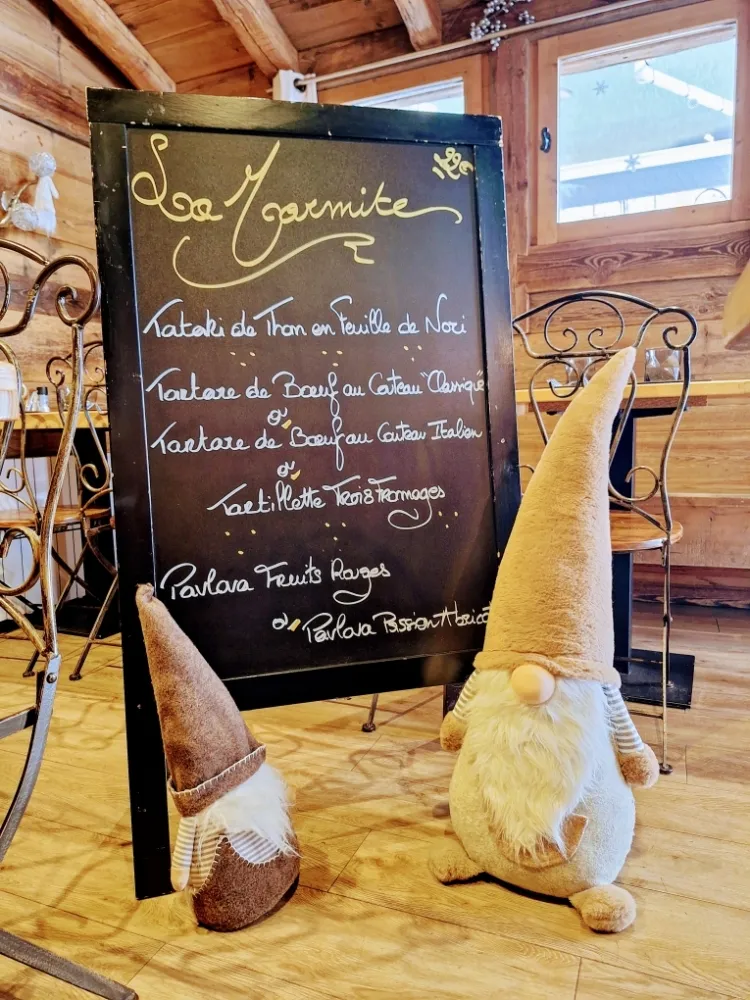 La Marmite
Tataki de Thon en Feuille de Nori
Tartare de Bœuf au Couteau "Classique"
où
Tartare de Bœuf au Couteau Italien
où
Tartiflette Trois Fromages
Pavlova Fruits Rouges
où Pavlova Passion Abricot